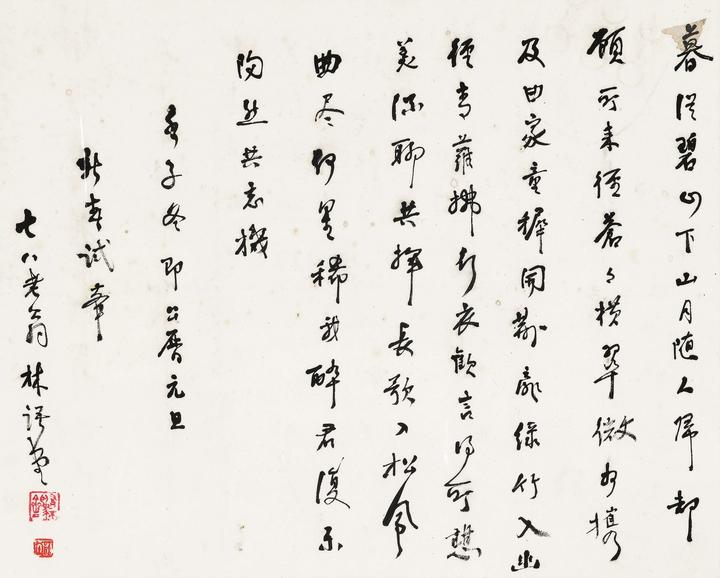 暮從碧山下山月随人歸却
顧所来徑蒼々横翠微相携
及田家童稺開荆扉緑竹入幽
徑青蘿拂行衣歡言得所憩
美酒聊共揮長歌入松風
曲尽河星稀我醉君復乐
陶然共忘機
壬子冬即公曆元旦
新春試筆
七八老翁林語堂